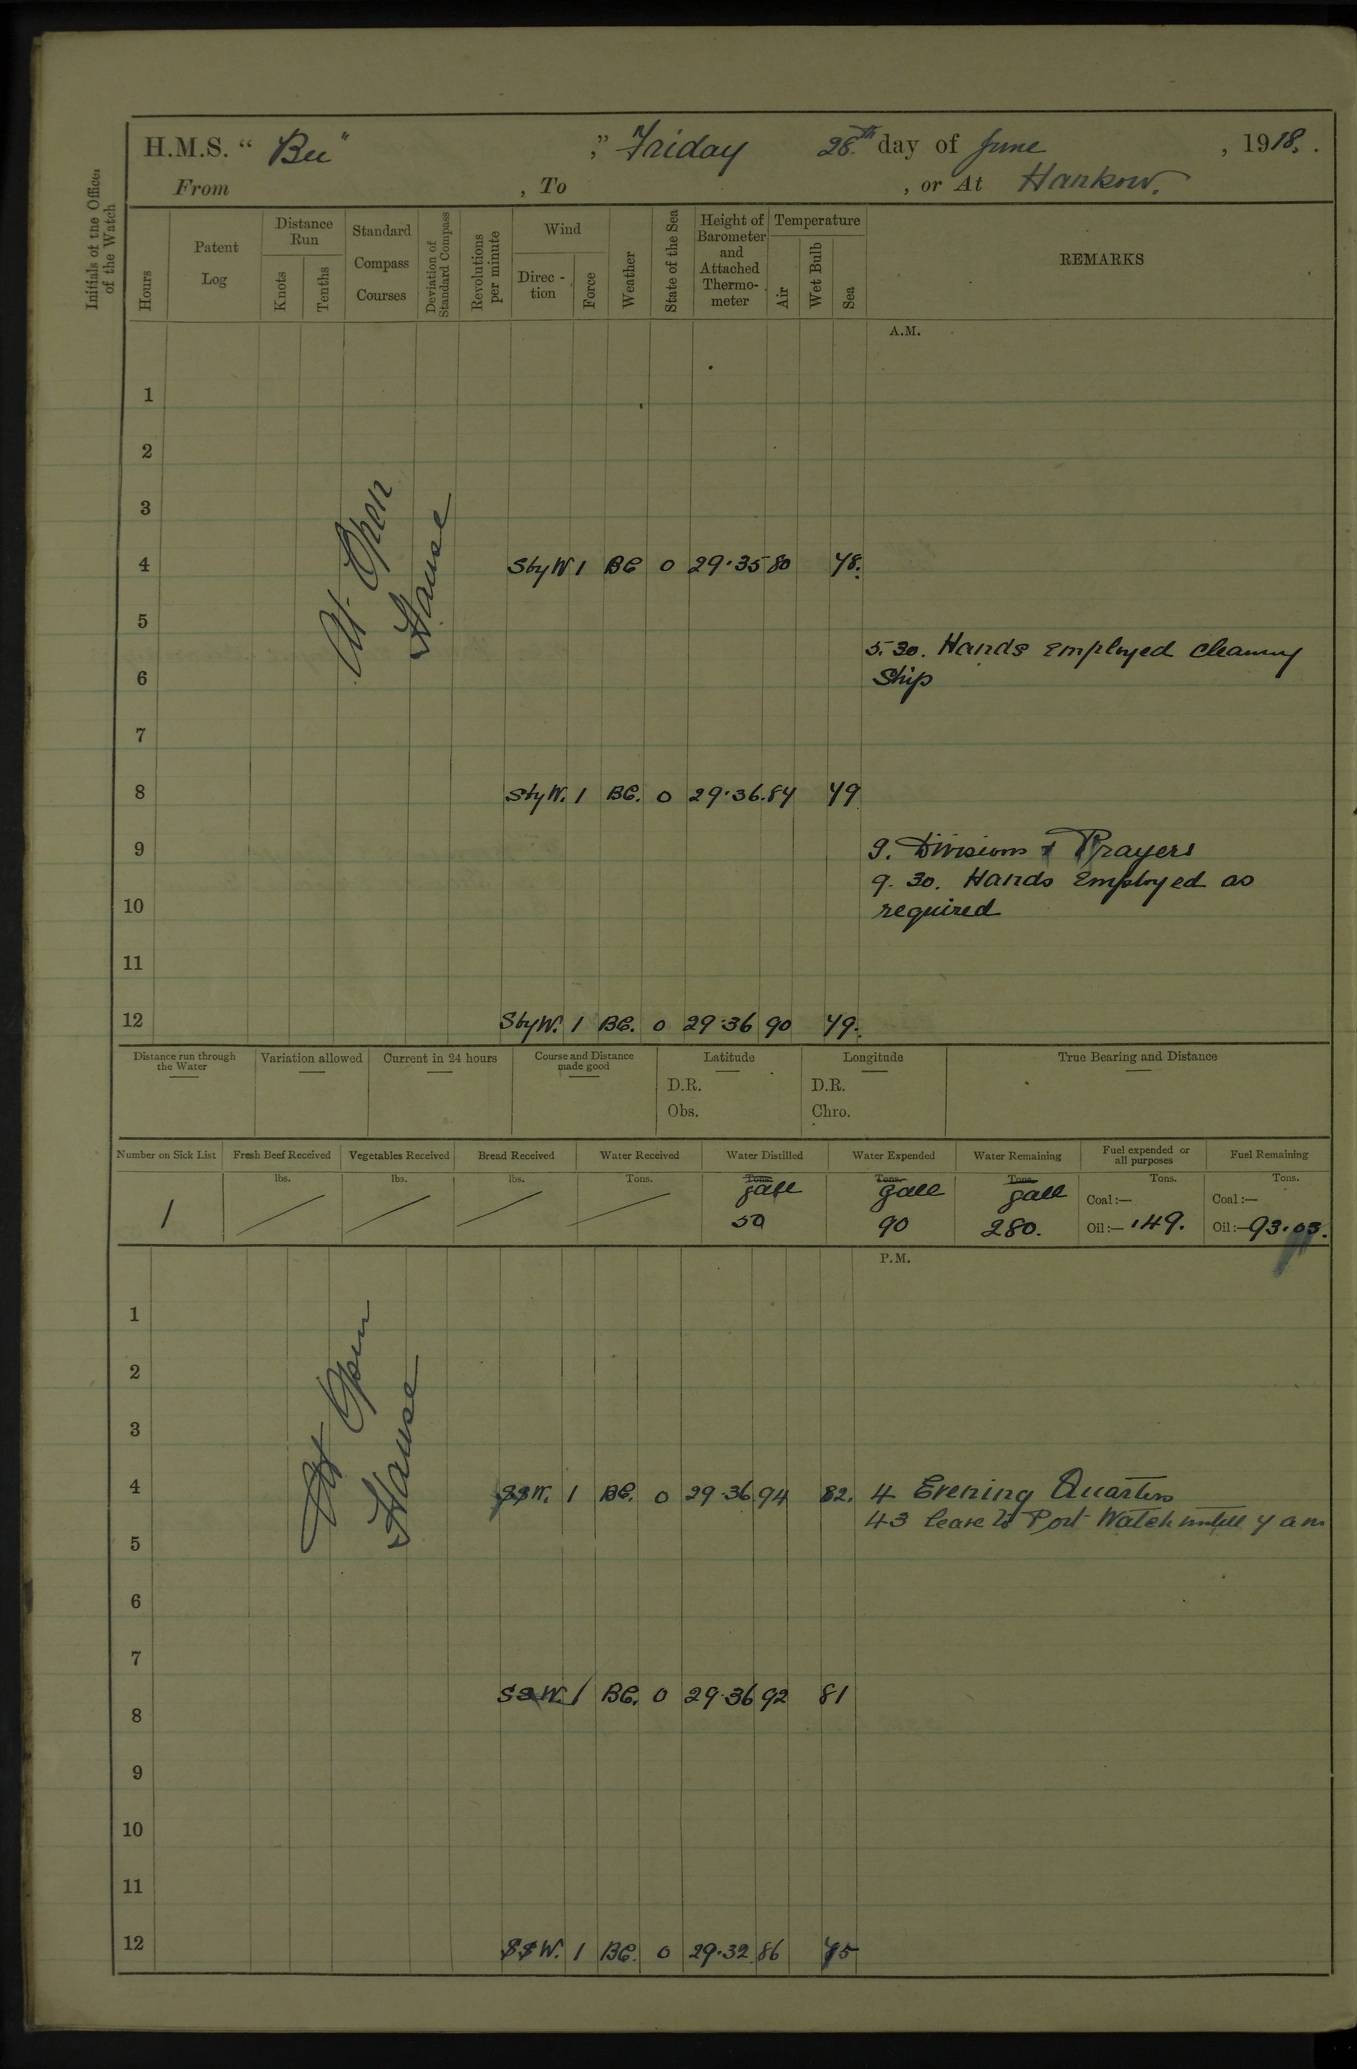 H.M.S. " Bee" ," Friday 28th day of June , 1918.
From , To , or At Hankow.
Initials of the Officer of the Watch
Hours
Patent Log
Distance Run
Knots
Tenths
Standard Compass Courses
Deviation of Standard Compass
Revolutions per minute
Wind
Direc - tion
Force
Weather
State of the Sea
Height of Barometer and Attached Thermo- meter
Temperature
Air
Wet Bulb
Sea
REMARKS
A.M.
At Open
Hawse
1
2
3
4 SbyW 1 BC 0 29.35 80 78.
5
5.30. Hands Employed Cleaning
6 Ship
7
8 SbyW. 1 BC. 0 29.36. 84 79
9 9. Divisions & Prayers
9.30. Hands Employed as
10 required
11
12 SbyW. 1 BC. 0 29.36 90 79.
Distance run through the Water
Variation allowed
Current in 24 hours
Course and Distance made good
Latitude
D.R.
Obs.
Longitude
D.R.
Chro.
True Bearing and Distance
Number on Sick List
1
Fresh Beef Received
lbs.
Vegetables Received
lbs.
Bread Received
lbs.
Water Received
Tons.
Water Distilled
Tons. galls
50
Water Expended
Tons. galls
90
Water Remaining
Tons. galls
280.
Fuel expended or all purposes
Tons.
Coal :—
Oil :— .149.
Fuel Remaining
Tons.
Coal :—
Oil :— 93.03.
P.M.
At Open
Hawse
1
2
3
4 SSW. 1 BC. 0 29.36 94 82. 4 Evening Quarters
43 leave to Port Watch untill 7 am
5
6
7
SSW. 1 BC. 0 29.36 92 81
8
9
10
11
12 SSW. 1 BC. 0 29.32 86 75